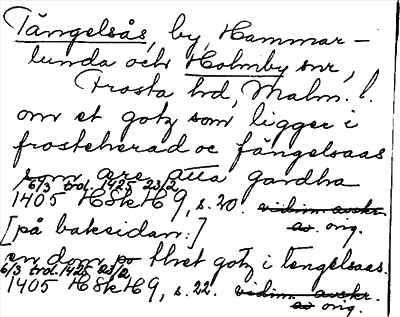 Tängelsås, by, Hammar-
lunda och Holmby snr,
Frosta hd, Malm. l.
om et gotz som ligger i
frosteherad oc fängelsaas
som ære atta gardha
6/3 trol. 1425 23/2
1405 HSkH 9, s. 20. vidim. avskr. av orig.
[på baksidan:]
en dom po thet gotz i tengelsaas.
6/3 trol. 1425 23/2
1405 HSkH 9, s. 22. vidim. avskr. av orig.